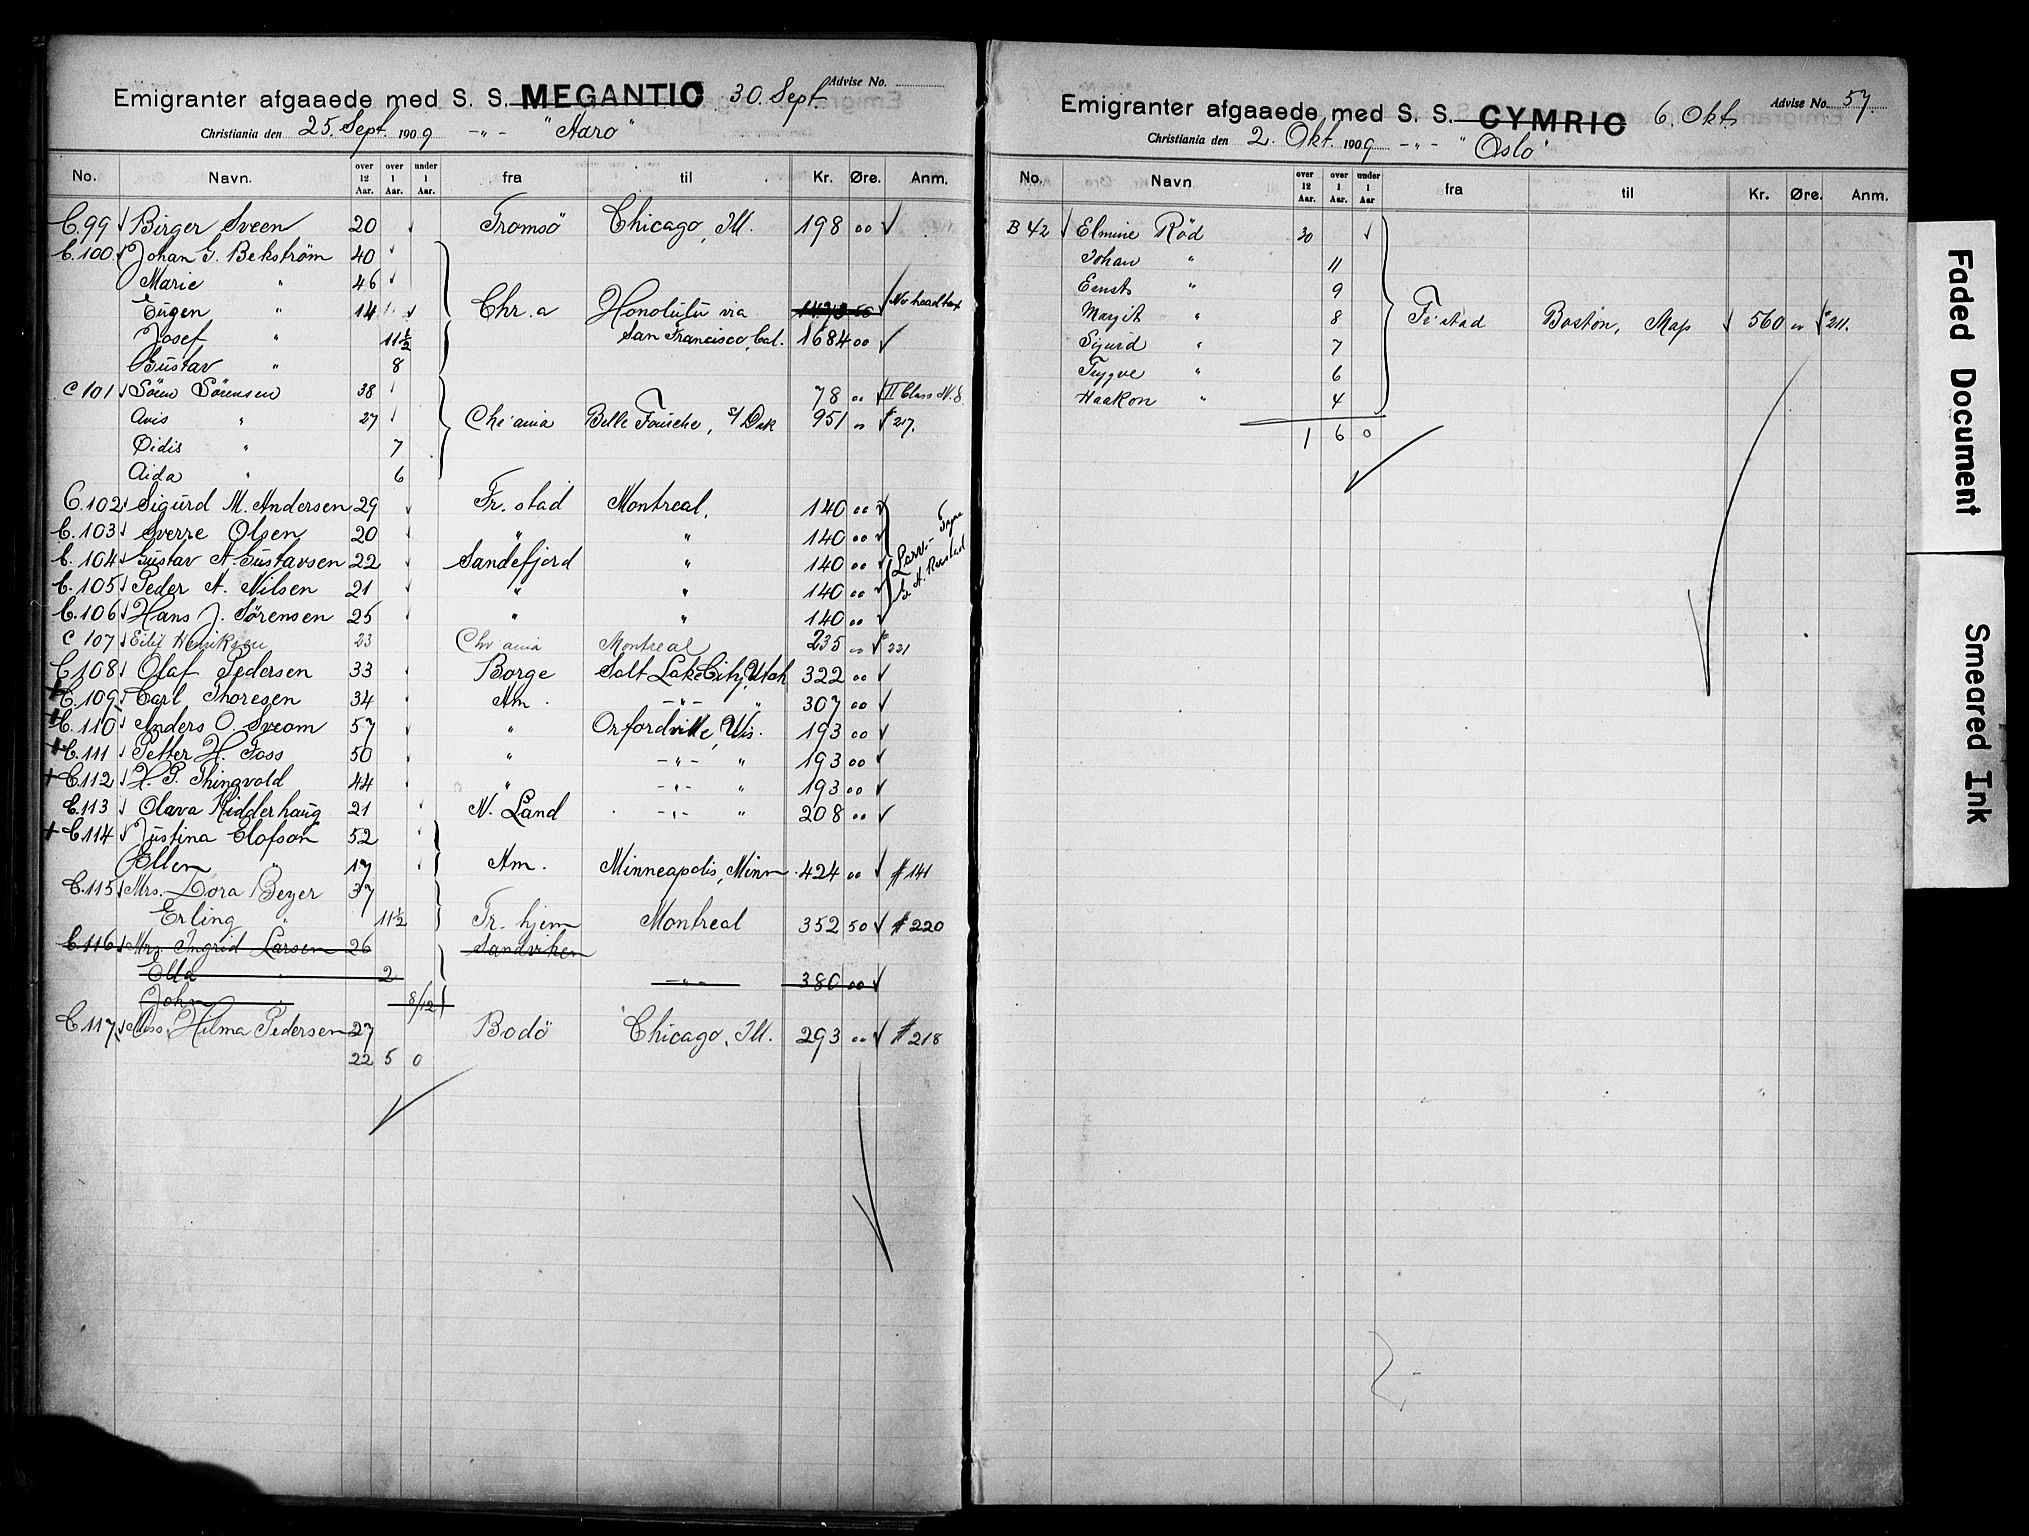 Emigranter afgaaede med S. S. MEGANTIC 30. Sept. Advise No.
Christiania den 25. Sept. 1909 -"- "Haro"
No. Navn. over 12 Aar. over 1 Aar. under 1 Aar. fra til Kr. Øre. Anm.
C. 99 Birger Sveen 20 Tromsö Chicago, Ill. 198 00
C. 100 Johan G. Bekström 40
Marie " 46
Eugen " 14 Chr.a Honolulu via No head tax
Josef " 11½ San Francisco, Cal. 1684 00
Gustav " 8
C 101 Sören Sörensen 38 78 " II Class N.S.
Avis " 27 Chr'ania Belle Fourche, S/Dak 951 " #217.
Didis " 7
Aida " 6
C. 102 Sigurd M. Andersen 29 Fr.stad Montreal. 140 00
C. 103 Sverre Olsen 20 " " 140 00
C. 104 Gustav A. Gustavsen 22 Sandefjord " 140 00
C. 105 Peder A. Nilsen 21 " " 140 00
C. 106 Hans J. Sörensen 25 " " 140 00
C 107 Eilif Henriksen 23 Chr'ania Montreal 235 " #221
C. 108 Olaf Pedersen 33 Borge Salt Lake City, Utah 322 00
+ C. 109 Carl Thoresen 34 Am. -"- " 307 00
+ C. 110 Anders O. Sveom 57 " Orfordville, Wis. 193 00
+ C. 111 Petter H. Foss 50 " -"- " 193 00
+ C. 112 H. P. Thingvold 44 " -"- " 193 00
C. 113 Olava Ridderhaug 21 N. Land -"- " 208 00
+ C. 114 Justina Olofson 52
Ellen " 17 Am. Minneapolis, Minn 424 00 #141
C. 115 Mrs. Dora Beyer 37
Erling " 11½ Tr. hjem Montreal 352 50 #220
C. 116 Mrs. Ingrid Larsen 26 Sandviken
Ella " 2 -"- 380 00
John " 8/12
C. 117 Miss. Hilma Pedersen 27 Bodö Chicago, Ill. 293 00 #218
22 5 0
Emigranter afgaaede med S. S. CYMRIC 6. Okt. Advise No. 57.
Christiania den 2. Okt. 1909 -"- "Oslo"
No. Navn over 12 Aar. over 1 Aar. under 1 Aar fra til Kr. Øre. Anm.
B 42 Elmine Röd 30
Johan " 11
Ernst " 9
Margit " 8 Fr'stad Boston, Mass 560 " #211.
Sigurd " 7
Trygve " 6
Haakon " 4
1 6 0
Faded Document
Smeared Ink